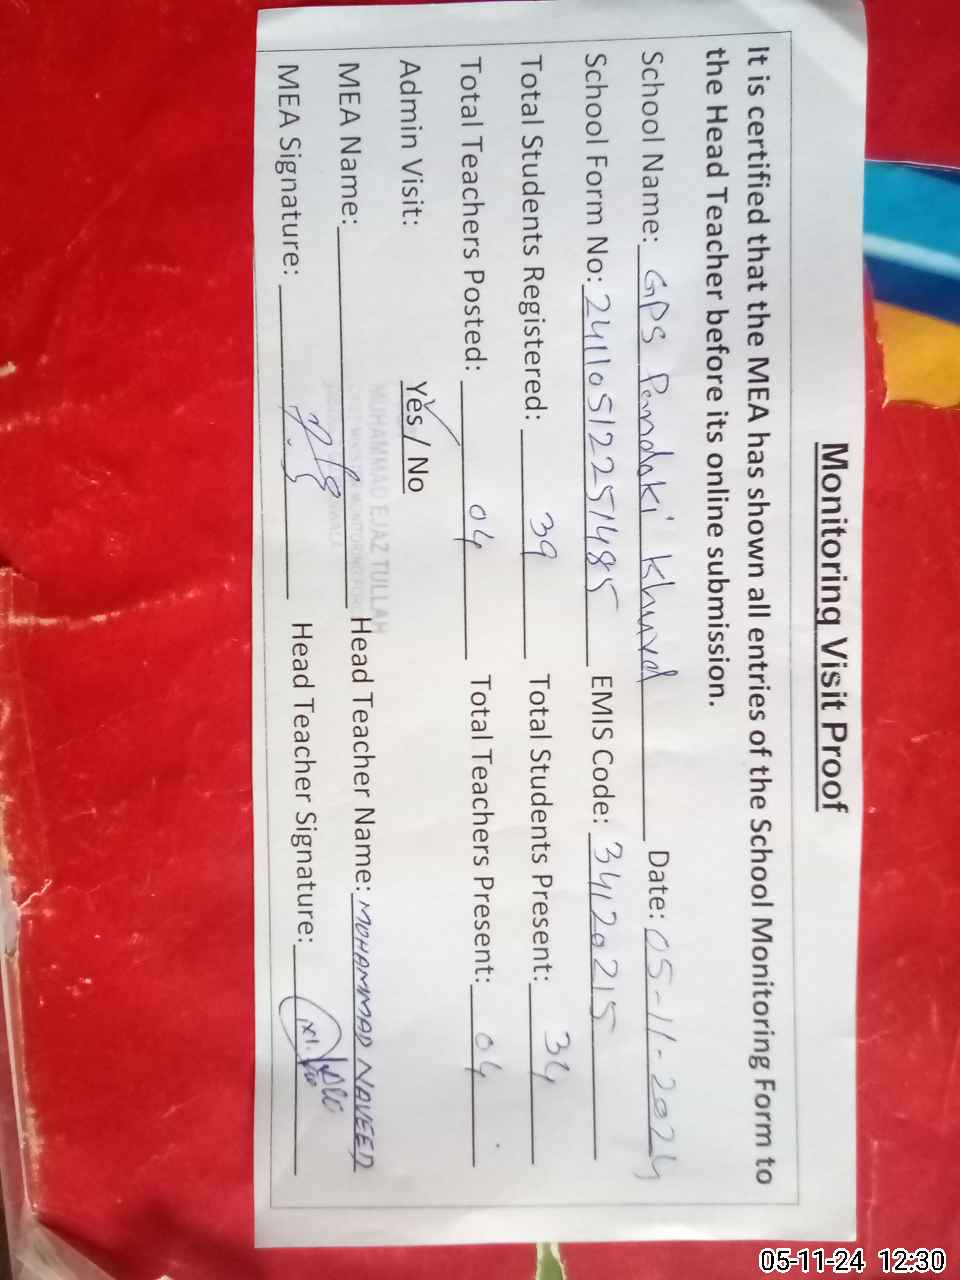 Monitoring Visit Proof
It is certified that the MEA has shown all entries of the School Monitoring Form to
the Head Teacher before its online submission.
School Name: GPS Pandoki Khurd Date: 05-11-2024
School Form No: 24110512251485 EMIS Code: 34120215
Total Students Registered: 39 Total Students Present: 34
Total Teachers Posted: 04 Total Teachers Present: 04
Admin Visit: Yes / No
MUHAMMAD EJAZ TULLAH
MEA Name: Head Teacher Name: MUHAMMAD NAVEED
MEA Signature: Head Teacher Signature:
05-11-24 12:30